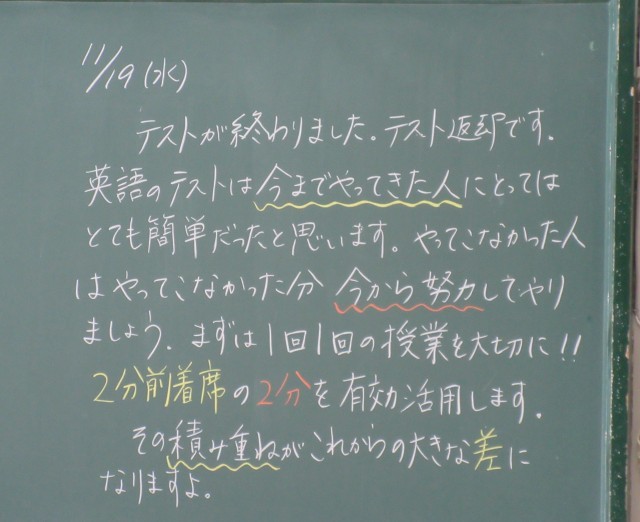 11/19(水)
テストが終わりました。テスト返却です。
英語のテストは今までやってきた人にとっては
とても簡単だったと思います。やってこなかった人
はやってこなかった分 今から努力してやり
ましょう。まずは1回1回の授業を大切に!!
2分前着席の2分を有効活用します。
その積み重ねがこれからの大きな差に
なりますよ。